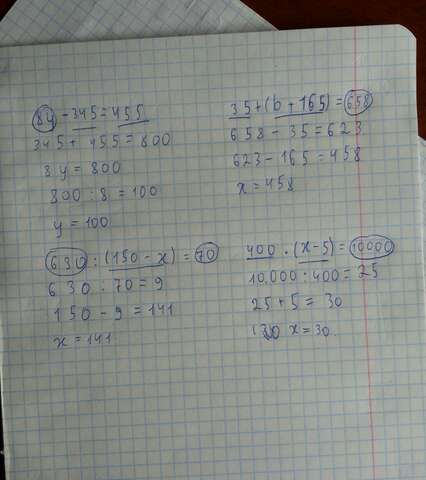 8y - 345 = 455
345 + 455 = 800
8y = 800
800 : 8 = 100
y = 100
35 + (b + 165) = 658
658 - 35 = 623
623 - 165 = 458
x = 458
630 : (150 - x) = 70
630 : 70 = 9
150 - 9 = 141
x = 141
400 · (x - 5) = 10000
10,000 : 400 = 25
25 + 5 = 30
x = 30.